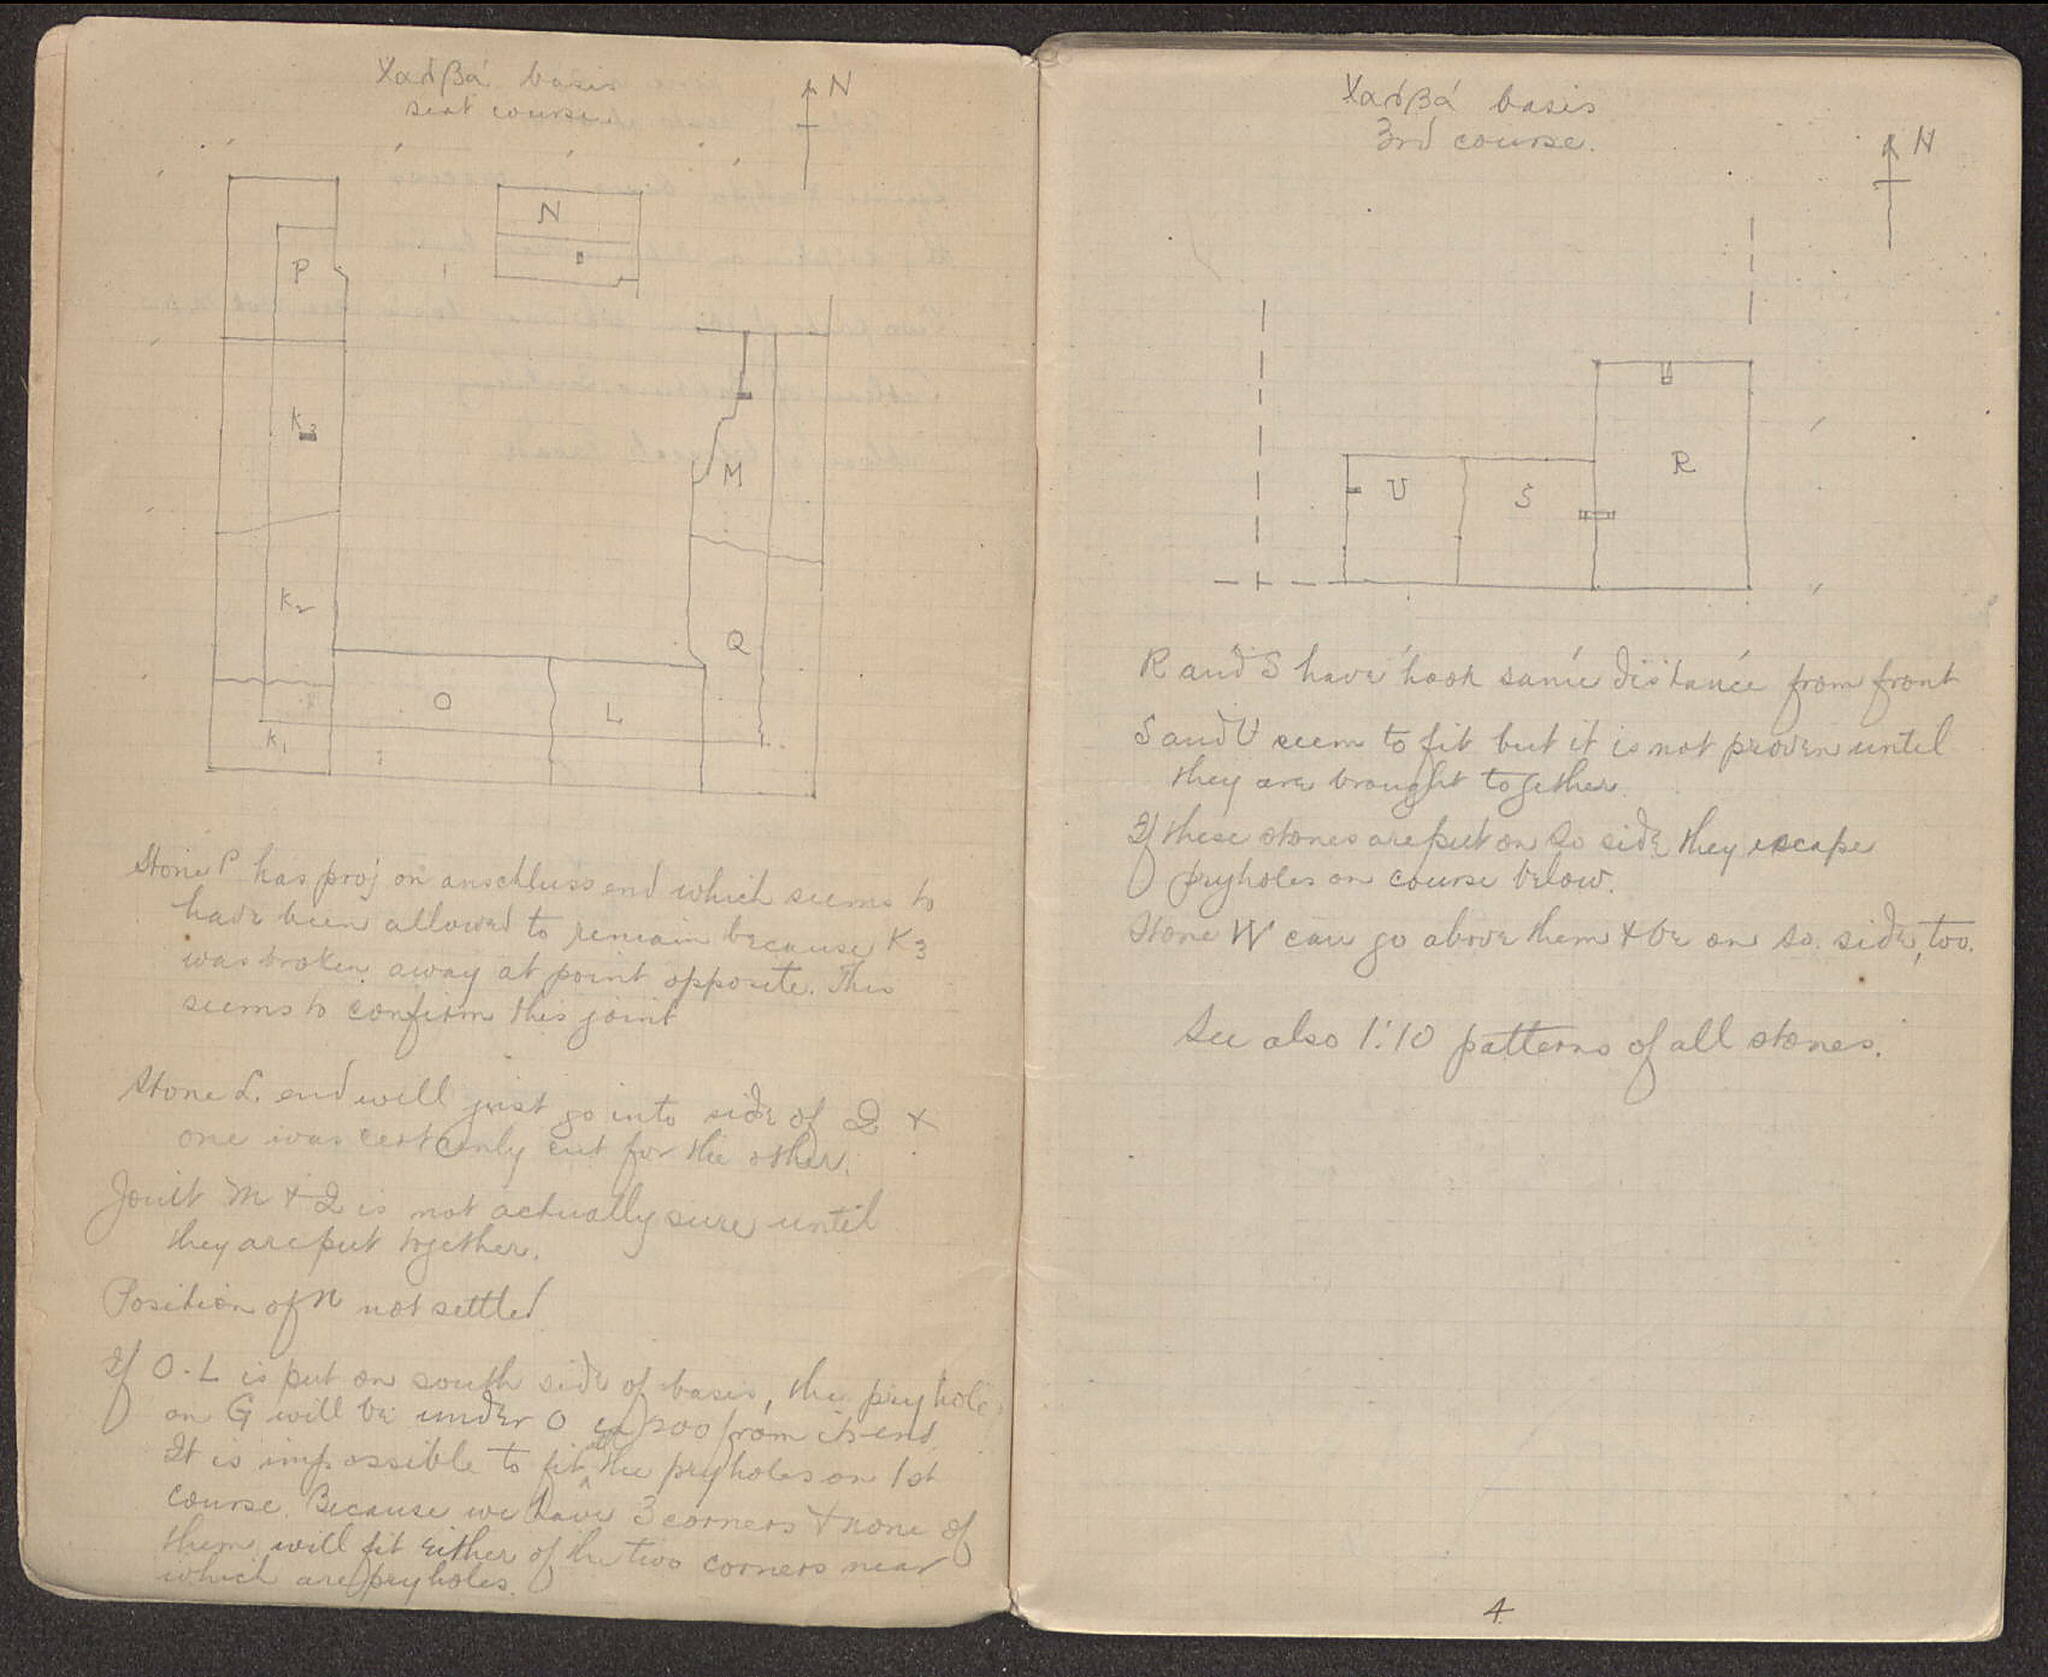 Χαλβά basis
seat course
N
N
P
K3
M
K2
Q
O
L
K1
Stone P has proj on anschluss end which seems to
have been allowed to remain because K3
was broken away at point opposite. This
seems to confirm this joint
Stone L. end will just go into side of Q +
one was certainly cut for the other.
Joint M + Q is not actually sure until
they are put together.
Position of N not settled
If O-L is put on south side of basis, the pryhole
on G will be under O 200 from its end.
It is impossible to fit the pryholes on 1st
course. Because we have 3 corners + none of
them will fit either of the two corners near
which are pryholes.
Χαλβά basis
3rd course.
N
R
U
S
R and S have hook same distance from front
S and U seem to fit but it is not proven until
they are brought together.
If these stones are put on So side they escape
pryholes on course below.
Stone W can go above them + be on so. side, too.
See also 1:10 patterns of all stones.
4